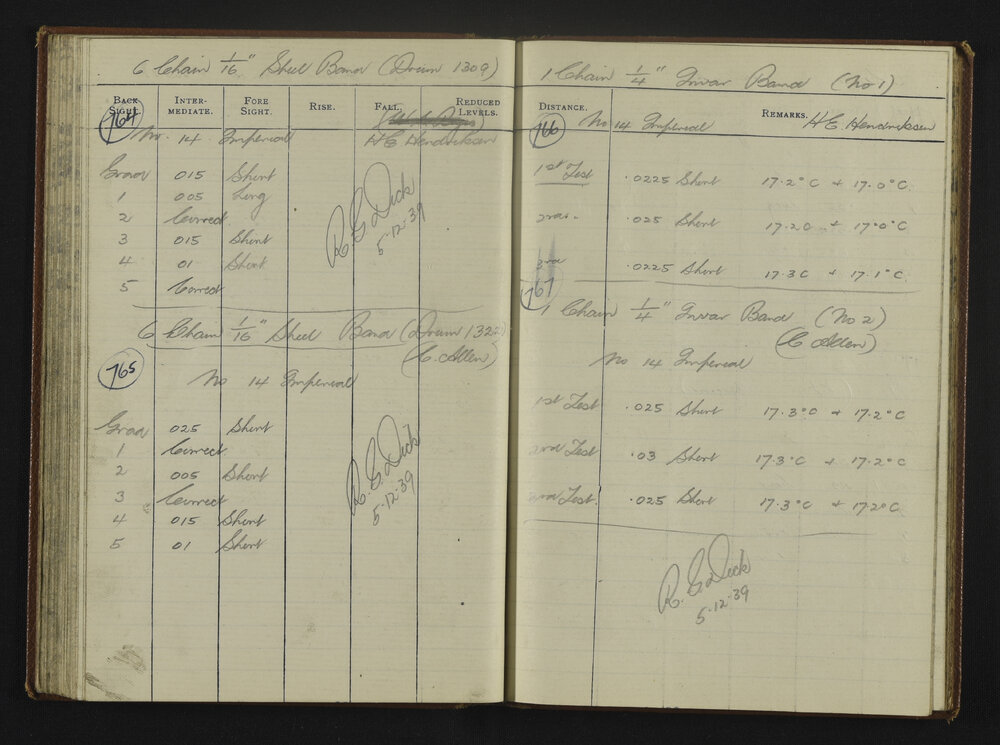 6 Chain 1/16" Steel Band (Drum 1309)
BACK SIGHT. INTER-MEDIATE. FORE SIGHT. RISE. FALL. REDUCED LEVELS.
764
No. 14 Imperial H E Hendriksen
Grad 015 Short
1 005 Long
2 Correct
3 015 Short
4 01 Short
5 Correct
R G Dick
5.12.39
6 Chain 1/16" Steel Band (Drum 1322)
(C. Allen)
765
No 14 Imperial
Grad 025 Short
1 Correct
2 005 Short
3 Correct
4 015 Short
5 01 Short
R. G. Dick
5.12.39
1 Chain 1/4" Invar Band (No 1)
DISTANCE. REMARKS.
766 No 14 Imperial H E Hendriksen
1st Test .0225 Short 17.2°C + 17.0°C
2nd .025 Short 17.2C + 17.0°C
3rd .0225 Short 17.3C + 17.1°C
767
1 Chain 1/4" Invar Band (No 2)
(C Allen)
No 14 Imperial
1st Test .025 Short 17.3°C + 17.2°C
2nd Test .03 Short 17.3°C + 17.2°C
3rd Test .025 Short 17.3°C + 17.2°C
R. G Dick
5.12.39